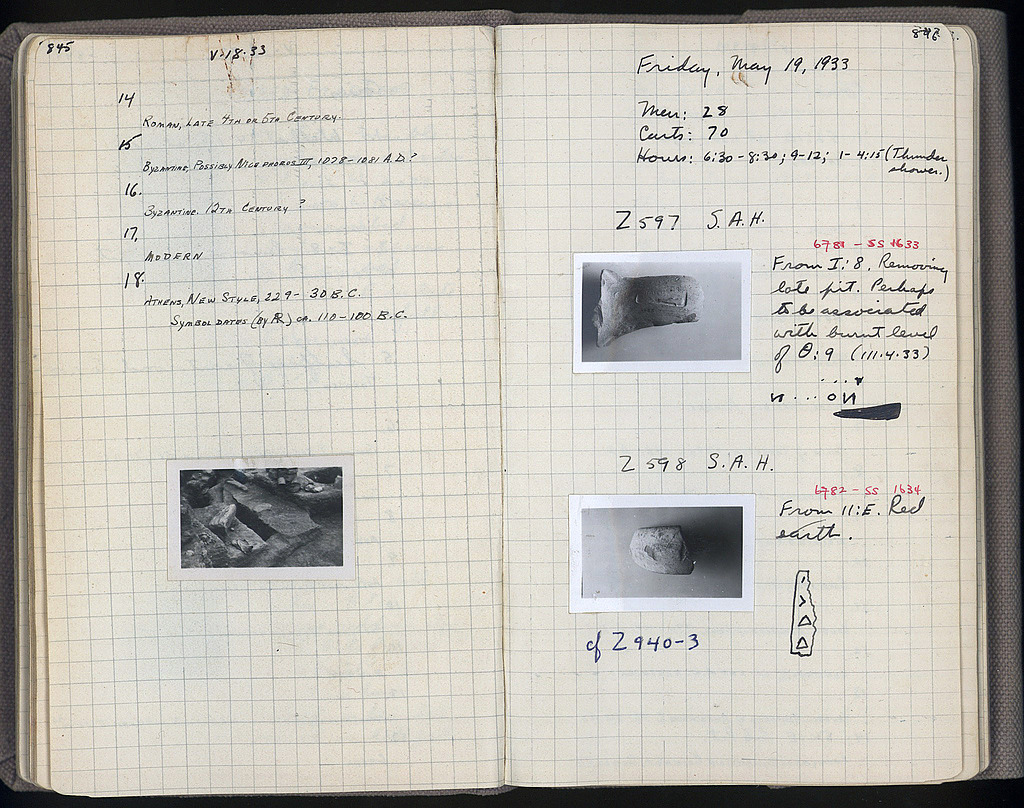 845
V-18-33
14
ROMAN, LATE 4TH OR 5TH CENTURY.
15
BYZANTINE, POSSIBLY NICEPHOROS III, 1078-1081 A.D.?
16.
BYZANTINE. 12TH CENTURY ?
17.
MODERN
18.
ATHENS, NEW STYLE, 229- 30 B.C.
SYMBOL DATES (BY ÆR) CA. 110-100 B.C.
846
Friday, May 19, 1933
Men: 28
Carts: 70
Hours: 6:30-8:30; 9-12; 1-4:15 (Thunder
shower.)
Z 597 S.A.H.
6781 - SS 1633
From I:8. Removing
late pit. Perhaps
to be associated
with burnt level
of Θ:9 (111.4.33)
Z 598 S.A.H.
6782 - SS 1634
From 11:E. Red
earth.
cf Z 940-3